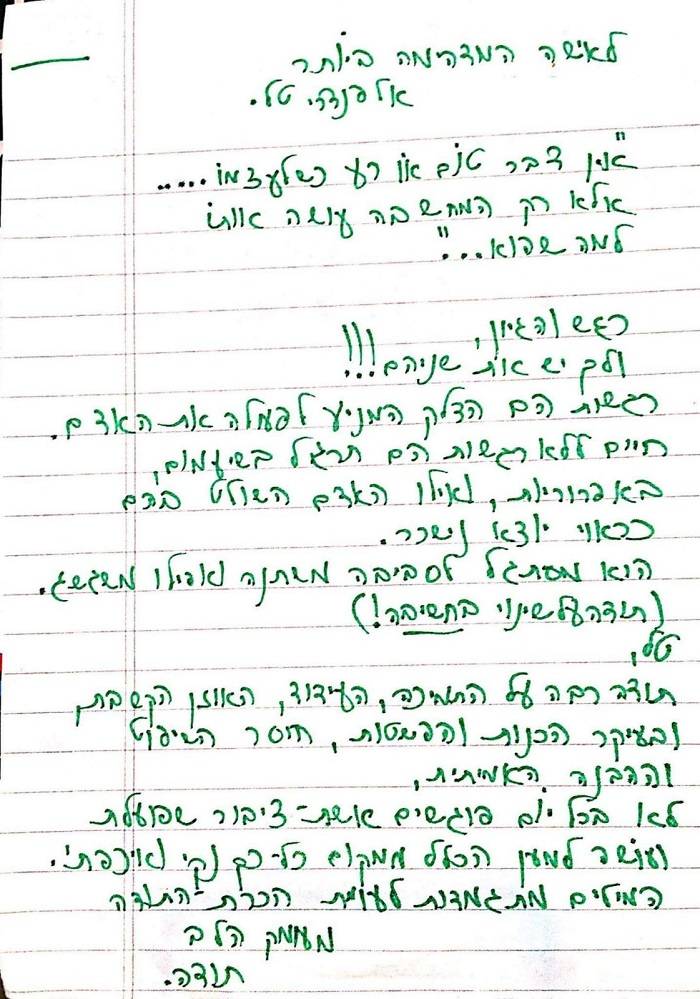 לאישה המדהימה ביותר
אלפנדרי טל.
"אין דבר טוב או רע כשלעצמו.....
אלא רק המחשבה עושה אותו
למה שהוא..."
רגש והגיון,
ולך יש את שניהם!!!
רגשות הם הדלק המניע לפעולה את האדם.
חיים ללא רגשות הם תרגל בשיעמום,
באפרוריות, ואילו האדם השולט בהם
כראוי יוצא נשכר.
הוא מסתגל לסביבה משתנה ואפילו משגשג.
(תודה על שינוי בחשיבה!)
טל,
תודה רבה על התמיכה, העידוד, האוזן הקשבת,
ובעיקר הכנות והפשטות, חוסר השיפוט
וההבנה האמיתית,
לא בכל יום פוגשים אשת-ציבור שפועלת
ועושה למען הכלל ממקום כל-כך נקי ואיכפתי.
המילים מתגמדות לעומת הכרת-התודה
מעומק הלב
תודה.